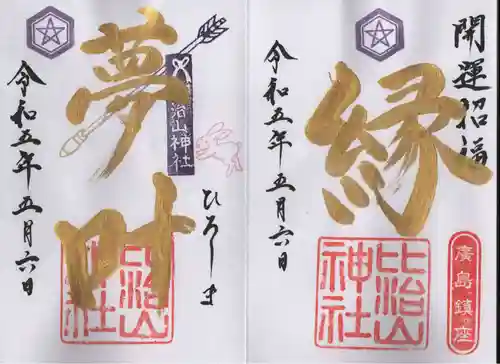 開運招福
縁
令和五年五月六日
比治山
神社
廣島鎮座
夢財
治山神社
ひろしま
令和五年五月六日
比治山
神社